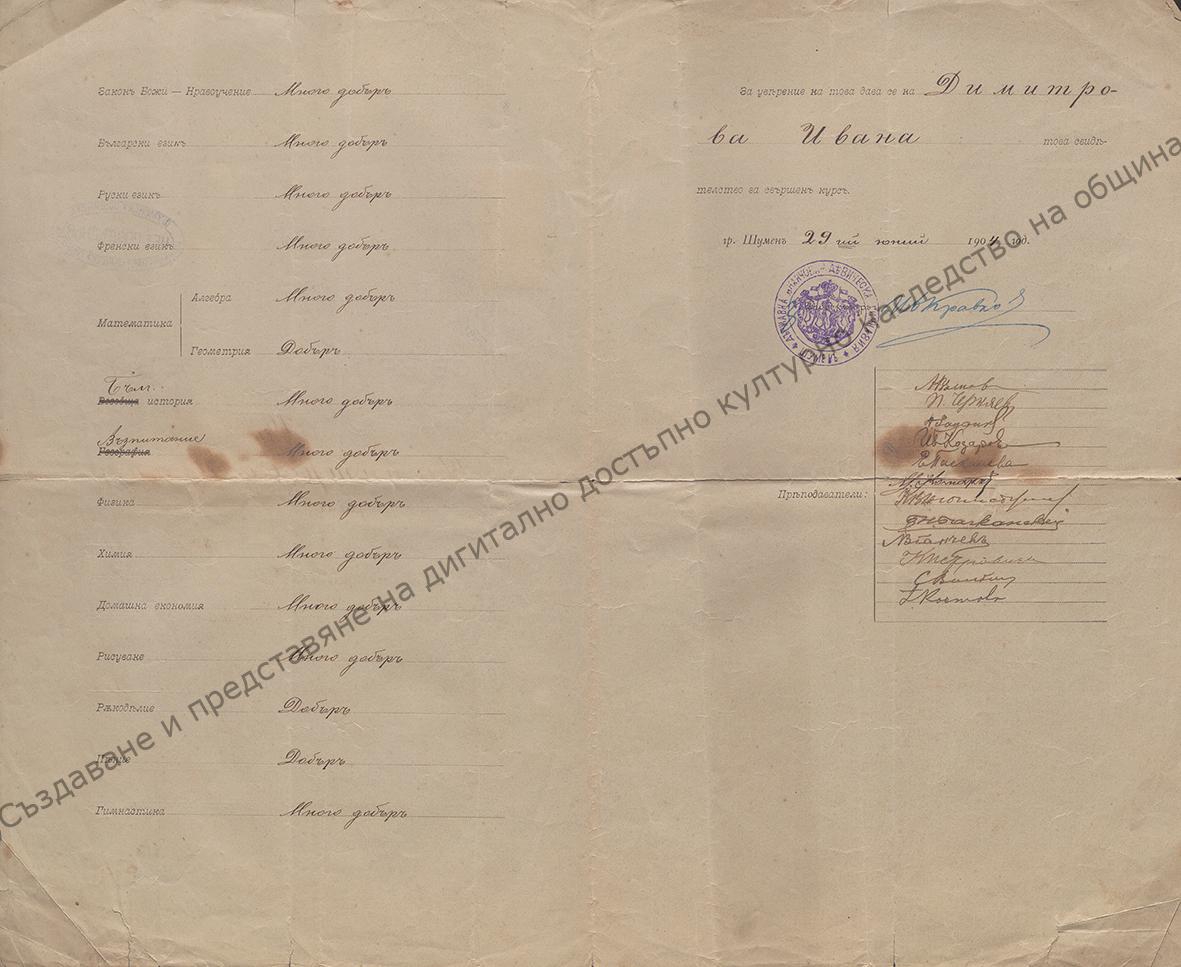 Законъ Божи — Нравоучение Много добъръ
Български езикъ Много добъръ
Руски езикъ Много добъръ
Френски езикъ Много добъръ
Математика
Алгебра Много добъръ
Геометрия Добъръ
Бълг.
Всеобща история Много добъръ
Възпитание
География Много добъръ
Физика Много добъръ
Химия Много добъръ
Домашна економия Много добъръ
Рисуване Много добъръ
Рѫкодѣлие Добъръ
Пѣние Добъръ
Гимнастика Много добъръ
За увѣрение на това дава се на Димитро-
ва Ивана това свидѣ-
телство за свършенъ курсъ.
гр. Шуменъ 29 ий юний 1904 год.
ДЕВИЧЕСКА ГИМНАЗИЯ
Прѣподаватели:
П. Черняев
Ив. Козаров
Създаване и представяне на дигитално достъпно културно наследство на община